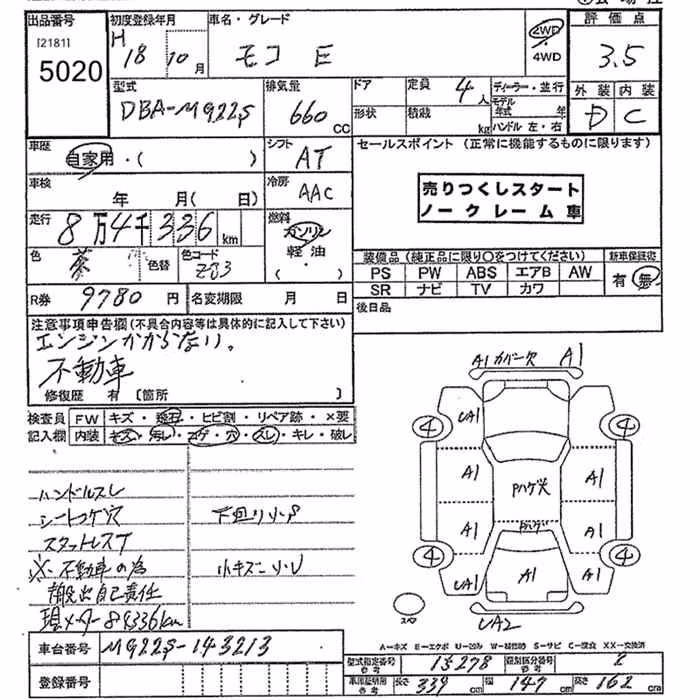 出品番号
[2181]
5020
初度登録年月
H 18 10 月
車名・グレード
モコ E
2WD
4WD
評価点
3.5
外装 内装
D C
型式
DBA-MG22S
排気量
660 CC
ドア
形状
定員 4 人
積載 kg
ディーラー・並行
モデル年式 年
ハンドル 左・右
車歴
自家用・( )
シフト
AT
セールスポイント (正常に機能するものに限ります)
売りつくしスタート
ノークレーム車
車検
年 月( 日)
冷房
AAC
走行
8万4千336 km
燃料
ガソリン
軽油
( ・ )
色
茶
色替
色コード
ZJ3
装備品(純正品に限り○をつけてください)
新車保証書
PS PW ABS エアB AW
SR ナビ TV カワ
有・無
R券 9780 円
名変期限 月 日
後日品
注意事項申告欄(不具合内容等は具体的に記入して下さい)
エンジンかからない。
不動車
修復歴 有 [箇所 ]
検査員記入欄
FW キズ・飛石・ヒビ割・リペア跡・×要
内装 キズ・汚レ・コゲ・穴・スレ・キレ・破レ
ハンドルスレ
シートコゲ穴
スタットレスT
※不動車の為
搬出自己責任
現メーター84336km
下回りサビ
小キズ
A1 カバー欠 A1
UA1
4 4
A1 A1
Pハゲ穴
A1 A1
Pハゲ
4 4
UA1 A1 A1
スペア
UA2
A-キズ E-エクボ U-凹み W-補修跡 S-サビ C-腐食 XX-交換済
車台番号 MG22S-143213
型式指定番号 15278
類別区分番号 2
登録番号
長さ 339 cm
幅 147 cm
高さ 162 cm